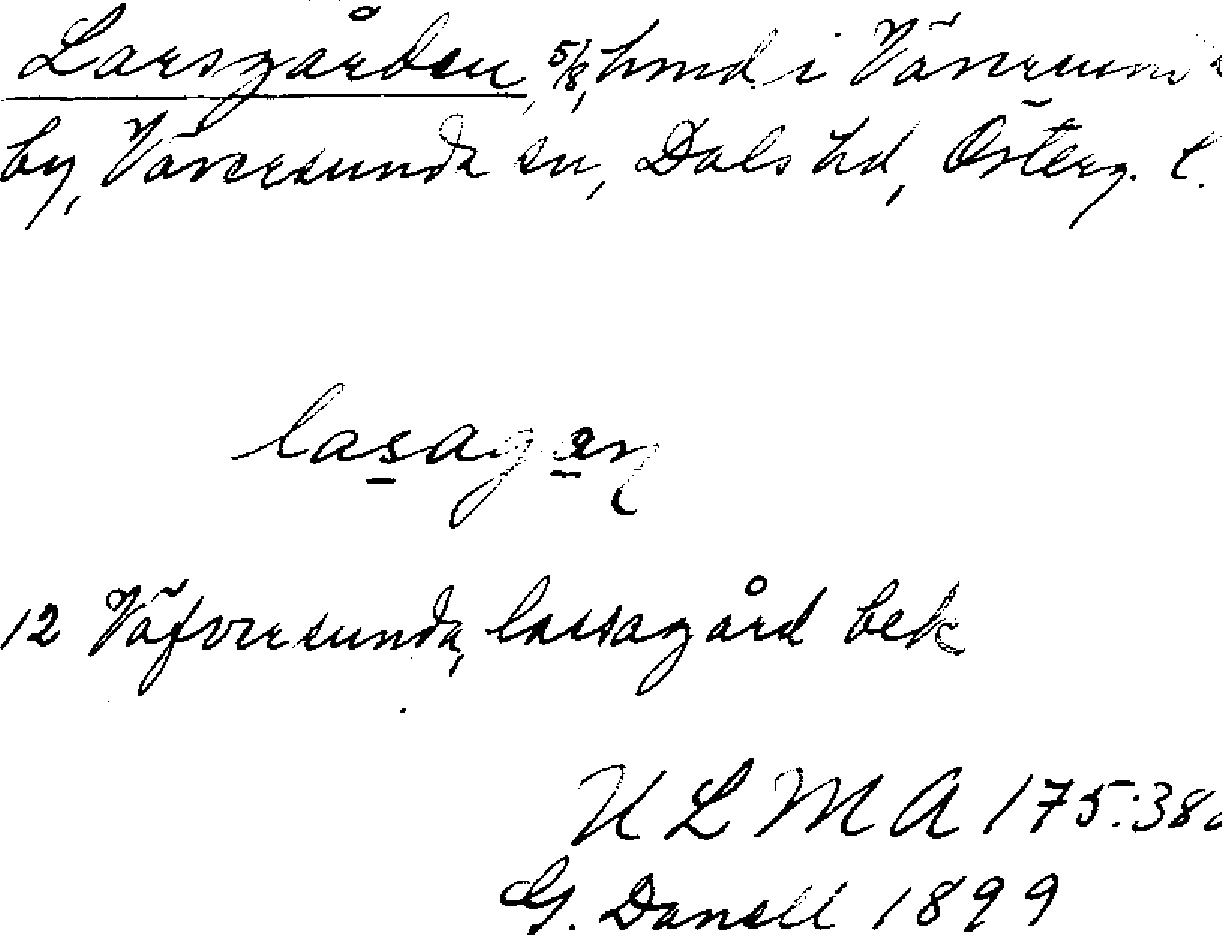 Larsgården, 5/8, hmd i Väversunda
by, Väversunda sn, Dals hd, Österg. l.
lasagen
12 Väfversunda, lassagård bek
ULMA 175:38a
G. Danell 1899